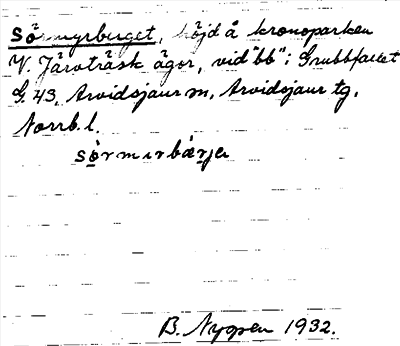 Sörmyrberget, höjd å kronoparken
V. Järvträsk ägor, vid "bb" i Grubbfallet
G. 43, Arvidsjaur sn, Arvidsjaur tg,
Norrb. l.
sörmırbärje
B. Nygren 1932.